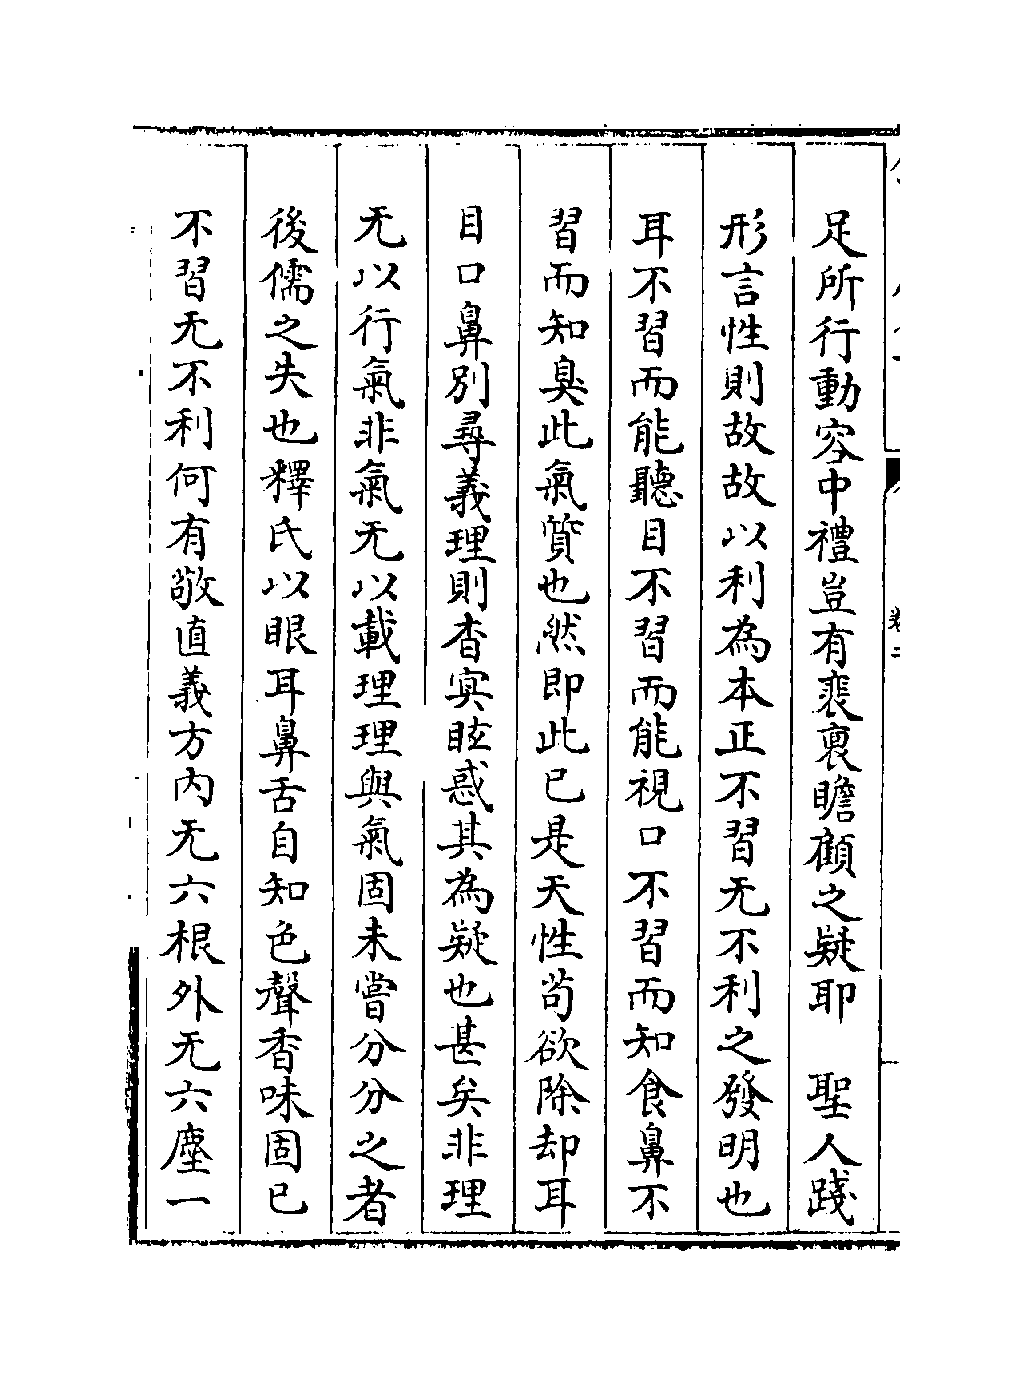 足所行動容中禮豈有裴裒瞻顧之疑耶　聖人踐
形言性則故故以利為本正不習无不利之發明也
耳不習而能聽目不習而能視口不習而知食鼻不
習而知臭此氣質也然即此已是天性苟欲除却耳
目口鼻別尋義理則杳㝠眩惑其為疑也甚矣非理
无以行氣非氣无以載理理與氣固未嘗分分之者
後儒之失也釋氏以眼耳鼻舌自知色聲香味固已
不習无不利何有敬直義方内无六根外无六塵一